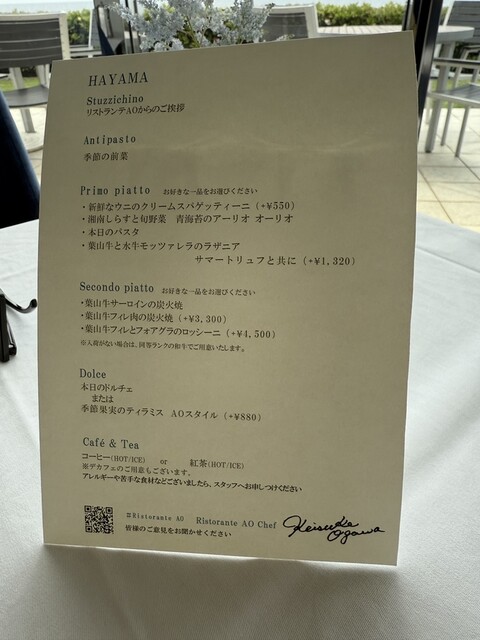 HAYAMA
Stuzzichino
リストランテAOからのご挨拶
Antipasto
季節の前菜
Primo piatto お好きな一品をお選びください
・新鮮なウニのクリームスパゲッティーニ (+¥550)
・湘南しらすと旬野菜 青海苔のアーリオ オーリオ
・本日のパスタ
・葉山牛と水牛モッツァレラのラザニア
サマートリュフと共に (+¥1,320)
Secondo piatto お好きな一品をお選びください
・葉山牛サーロインの炭火焼
・葉山牛フィレ肉の炭火焼 (+¥3,300)
・葉山牛フィレとフォアグラのロッシーニ (+¥4,500)
※入荷がない場合は、同等ランクの和牛でご用意いたします。
Dolce
本日のドルチェ
または
季節果実のティラミス AOスタイル (+¥880)
Café & Tea
コーヒー(HOT/ICE) or 紅茶(HOT/ICE)
※デカフェのご用意もございます。
アレルギーや苦手な食材などございましたら、スタッフへお申しつけください
Ristorante AO Ristorante AO Chef Keisuke Ogawa
皆様のご意見をお聞かせください